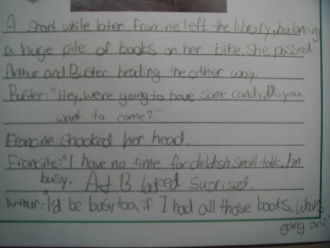 A short while later Francine left the library, balancing
a huge pile of books on her bike. She passed
Arthur and Buster heading the other way.
Buster: "Hey, we're going to have some candy, Do you
want to come?"
Francine shooked her head.
Francine: "I have no time for childish small talk. I'm
busy. A & B looked suprised.
Arthur: I'd be busy too, if I had all those books. What's
going on?